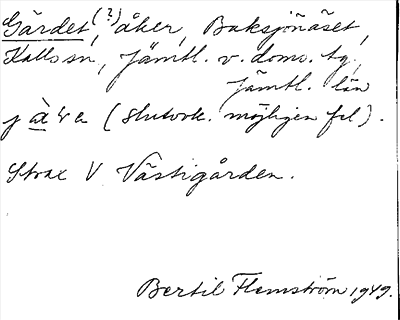 Gärdet(?), åker, Baksjönäset,
Kalls sn, Jämtl. v. doms. tg,
Jämtl. län
(slutvok. möjligen fel).
Strax V Västigården.
Bertil Flemström 1949.